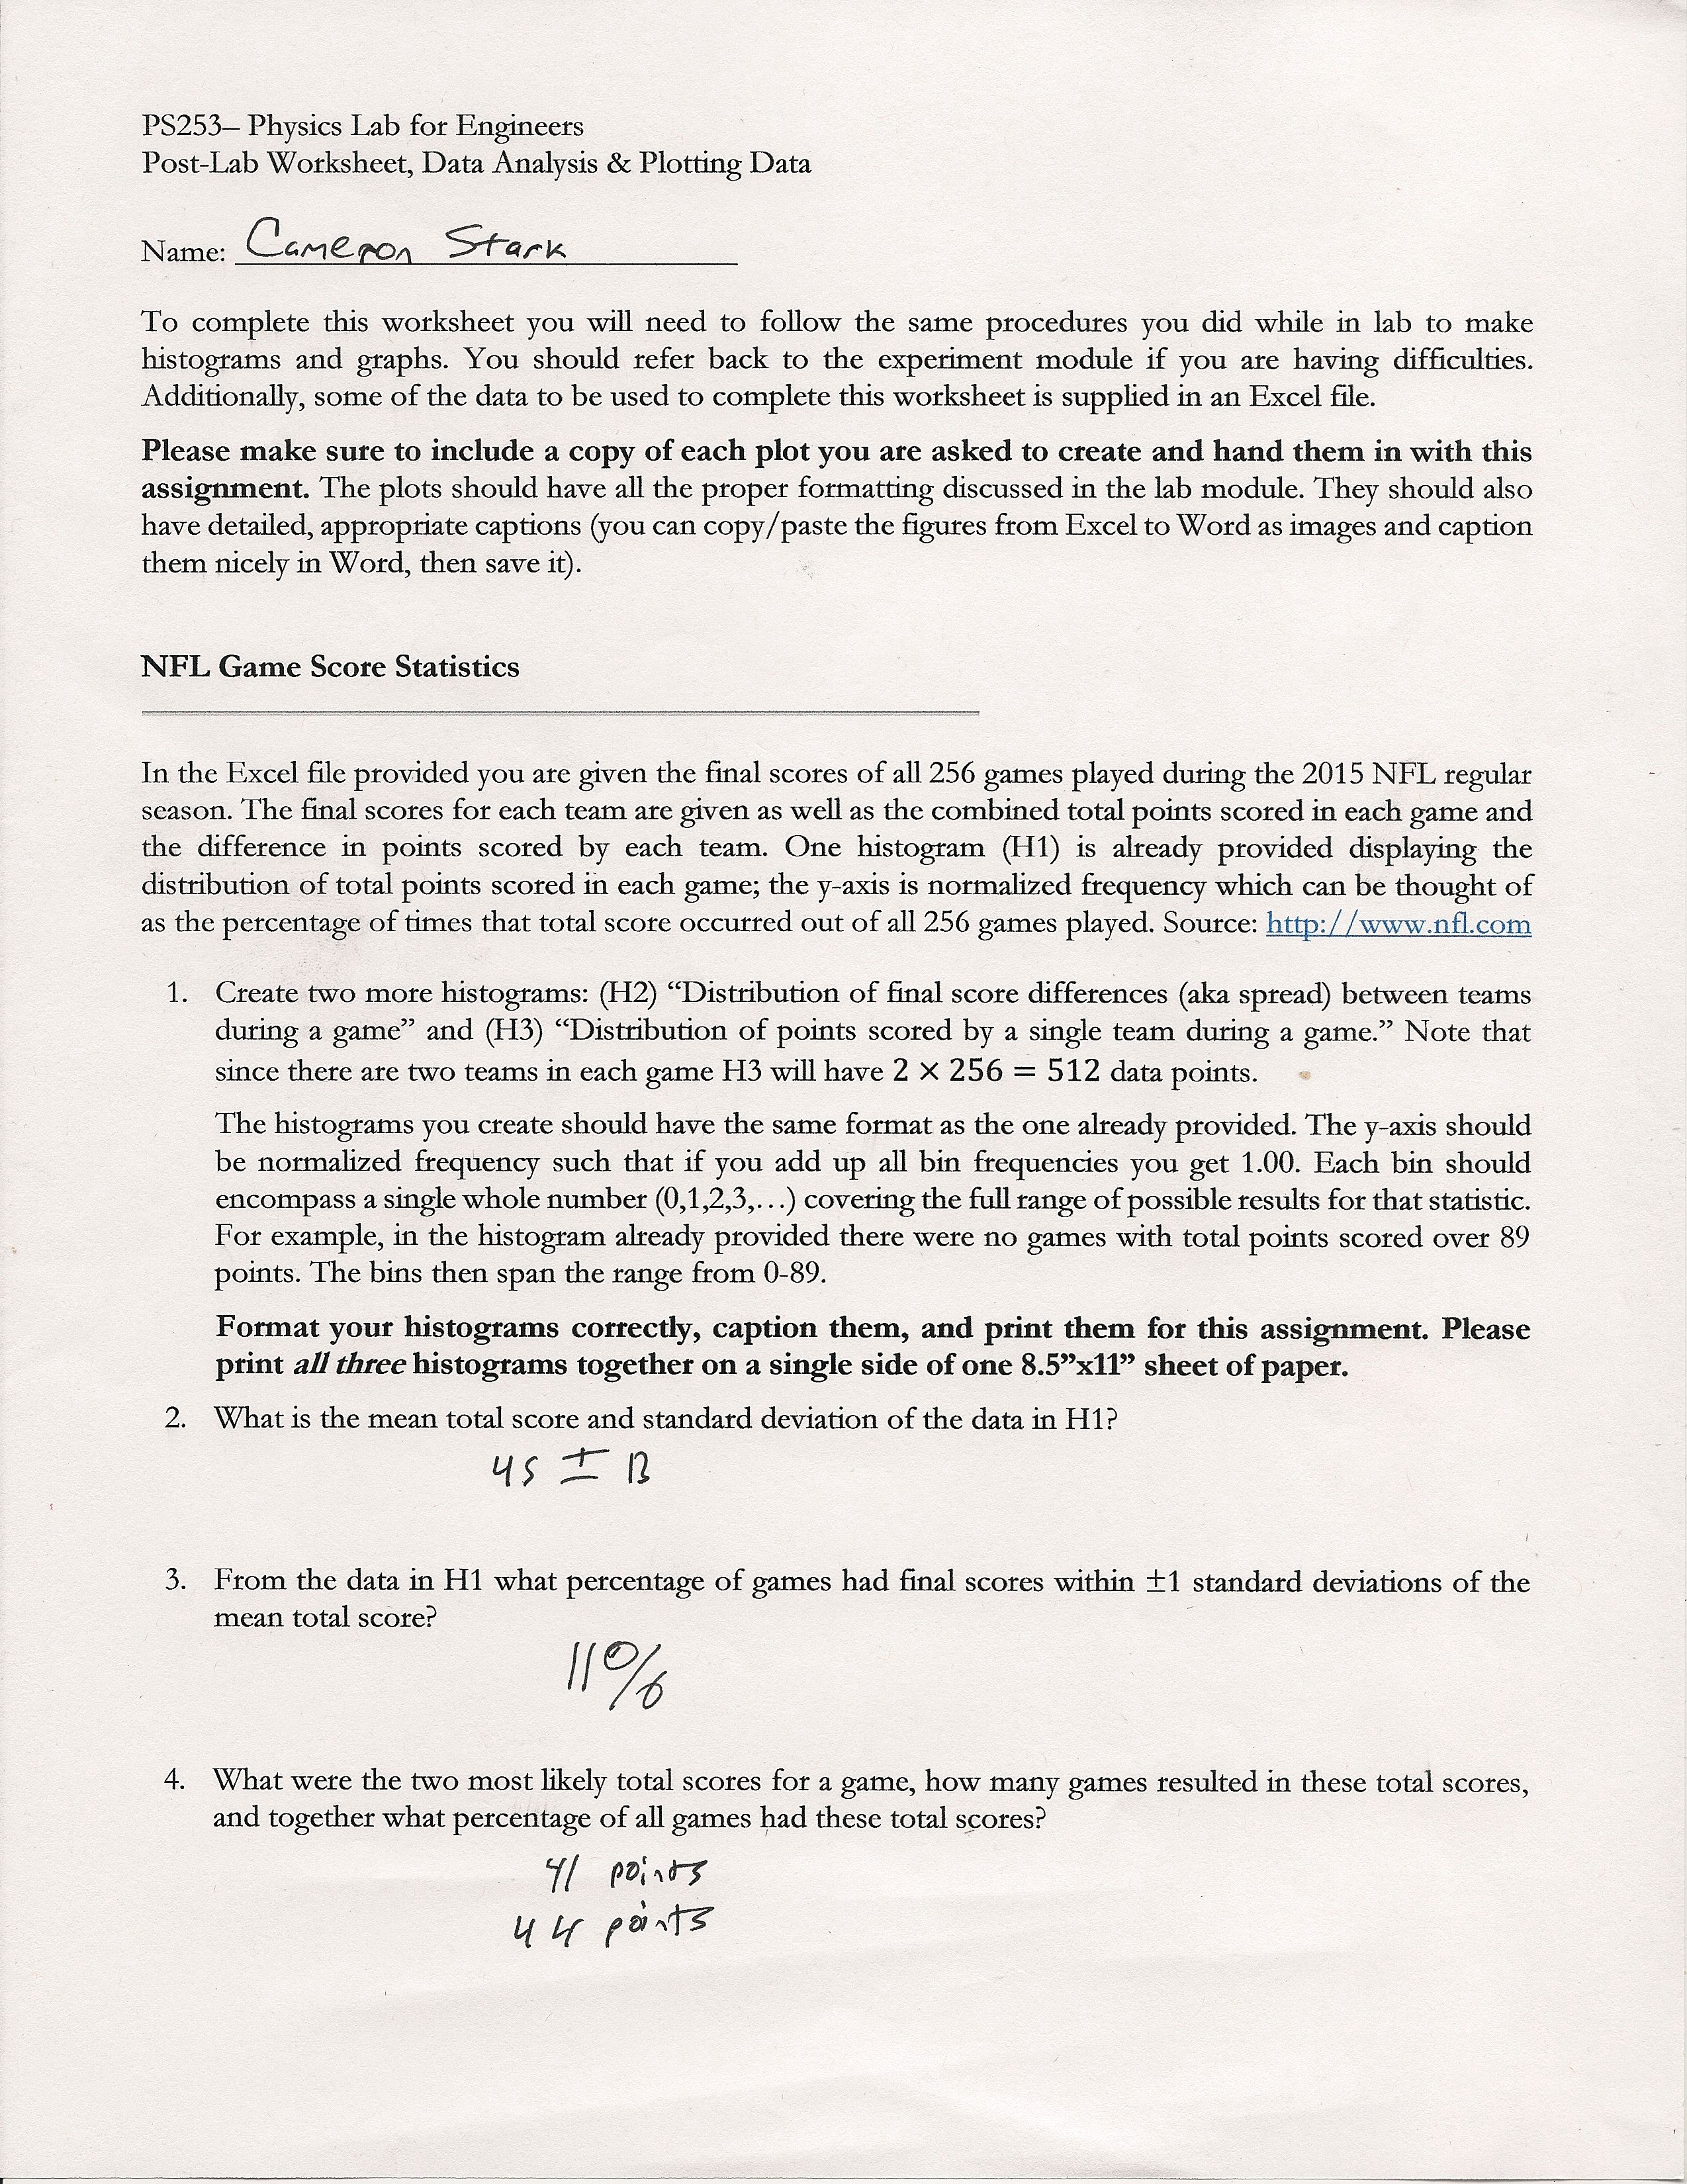 PS253– Physics Lab for Engineers
Post-Lab Worksheet, Data Analysis & Plotting Data
Name: Cameron Stark
To complete this worksheet you will need to follow the same procedures you did while in lab to make
histograms and graphs. You should refer back to the experiment module if you are having difficulties.
Additionally, some of the data to be used to complete this worksheet is supplied in an Excel file.
Please make sure to include a copy of each plot you are asked to create and hand them in with this
assignment. The plots should have all the proper formatting discussed in the lab module. They should also
have detailed, appropriate captions (you can copy/paste the figures from Excel to Word as images and caption
them nicely in Word, then save it).
NFL Game Score Statistics
In the Excel file provided you are given the final scores of all 256 games played during the 2015 NFL regular
season. The final scores for each team are given as well as the combined total points scored in each game and
the difference in points scored by each team. One histogram (H1) is already provided displaying the
distribution of total points scored in each game; the y-axis is normalized frequency which can be thought of
as the percentage of times that total score occurred out of all 256 games played. Source: http://www.nfl.com
1. Create two more histograms: (H2) “Distribution of final score differences (aka spread) between teams
during a game” and (H3) “Distribution of points scored by a single team during a game.” Note that
since there are two teams in each game H3 will have 2 × 256 = 512 data points.
The histograms you create should have the same format as the one already provided. The y-axis should
be normalized frequency such that if you add up all bin frequencies you get 1.00. Each bin should
encompass a single whole number (0,1,2,3,…) covering the full range of possible results for that statistic.
For example, in the histogram already provided there were no games with total points scored over 89
points. The bins then span the range from 0-89.
Format your histograms correctly, caption them, and print them for this assignment. Please
print all three histograms together on a single side of one 8.5”x11” sheet of paper.
2. What is the mean total score and standard deviation of the data in H1?
45 ± 13
3. From the data in H1 what percentage of games had final scores within ±1 standard deviations of the
mean total score?
11%
4. What were the two most likely total scores for a game, how many games resulted in these total scores,
and together what percentage of all games had these total scores?
41 points
44 points